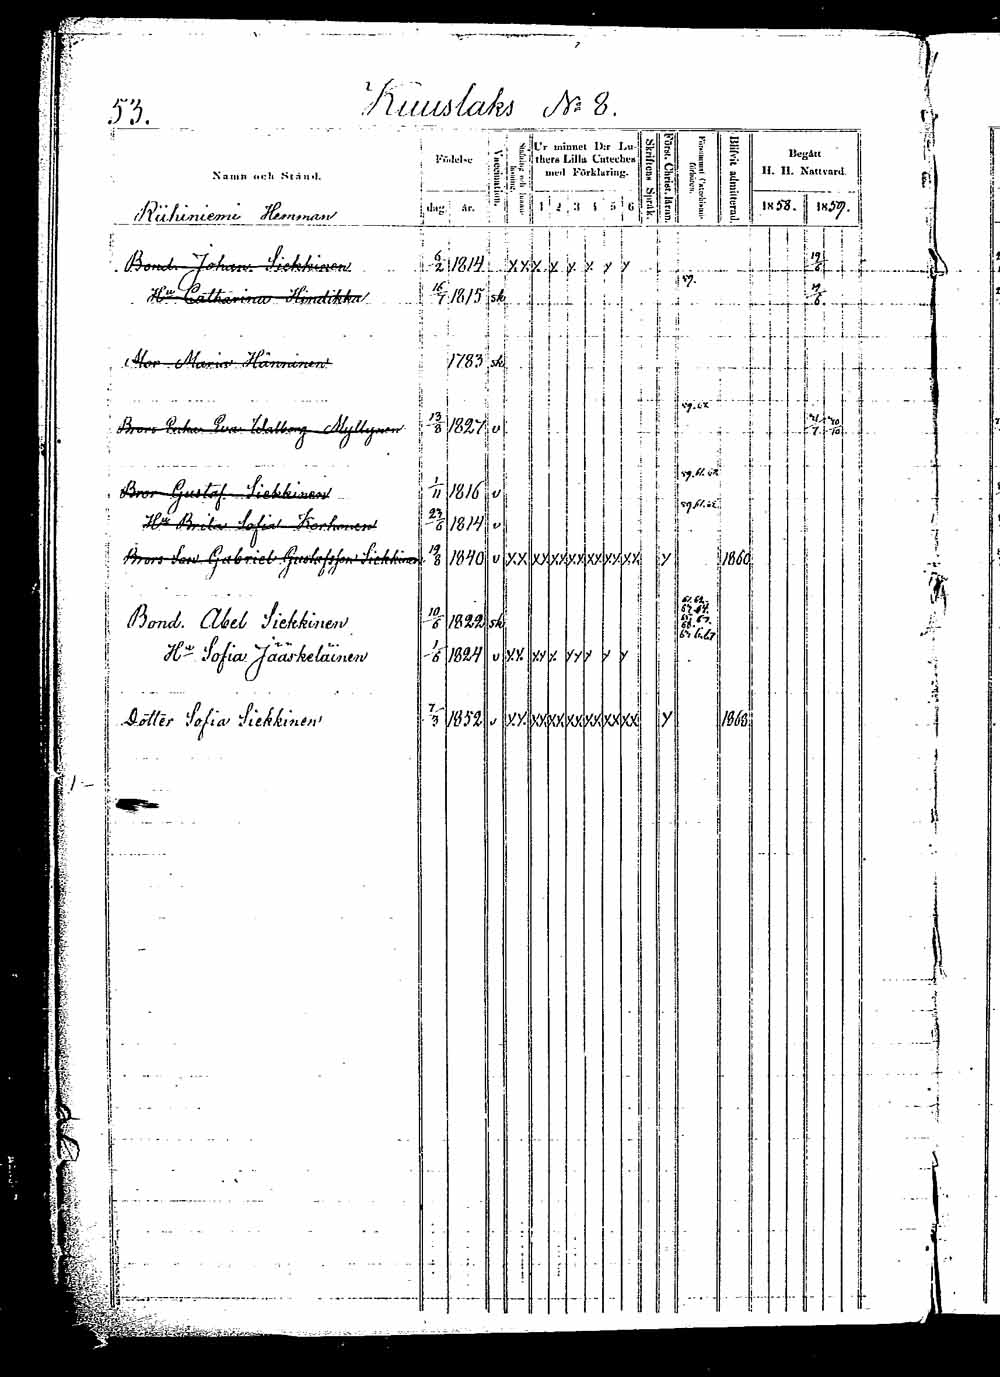 53.
Kuuslaks № 8.
Namn och Stånd.
Födelse
dag. år.
Vaccination.
Stafning och Innanläsning.
Ur minnet D:r Luthers Lilla Cateches med Förklaring.
1 2 3 4 5 6
Skriftens Språk.
Först. Christ. läran.
Försummat Catechismiförhören.
Blifvit admitterad.
Begått H. H. Nattvard.
1858. 1859.
Riihiniemi Hemman
Bond. Johan Siekkinen 6/2 1814 x x x x x x x x 19/6
Hu Catharina Hindikka 16/7 1815 sk 59. 19/6
Mor Maria Hänninen 1783 sk
Brors Enka Eva Walborg Myllynen 13/8 1827 v 59.62 1/7 20/10
Bror Gustaf Siekkinen 1/11 1816 v 59.61.62
Hu Brita Sofia Korhonen 23/6 1814 v 59.61.62
Brors Son Gabriel Gustafsson Siekkinen 19/8 1840 v xx xx xx xx xx xx xx x 1860
Bond. Abel Siekkinen 10/6 1822 sk
Hu Sofia Jääskeläinen 1/6 1824 v xx xx x xxx x x
Dotter Sofia Siekkinen 7/3 1852 v xx xx xx xx xx xx xx x 1868